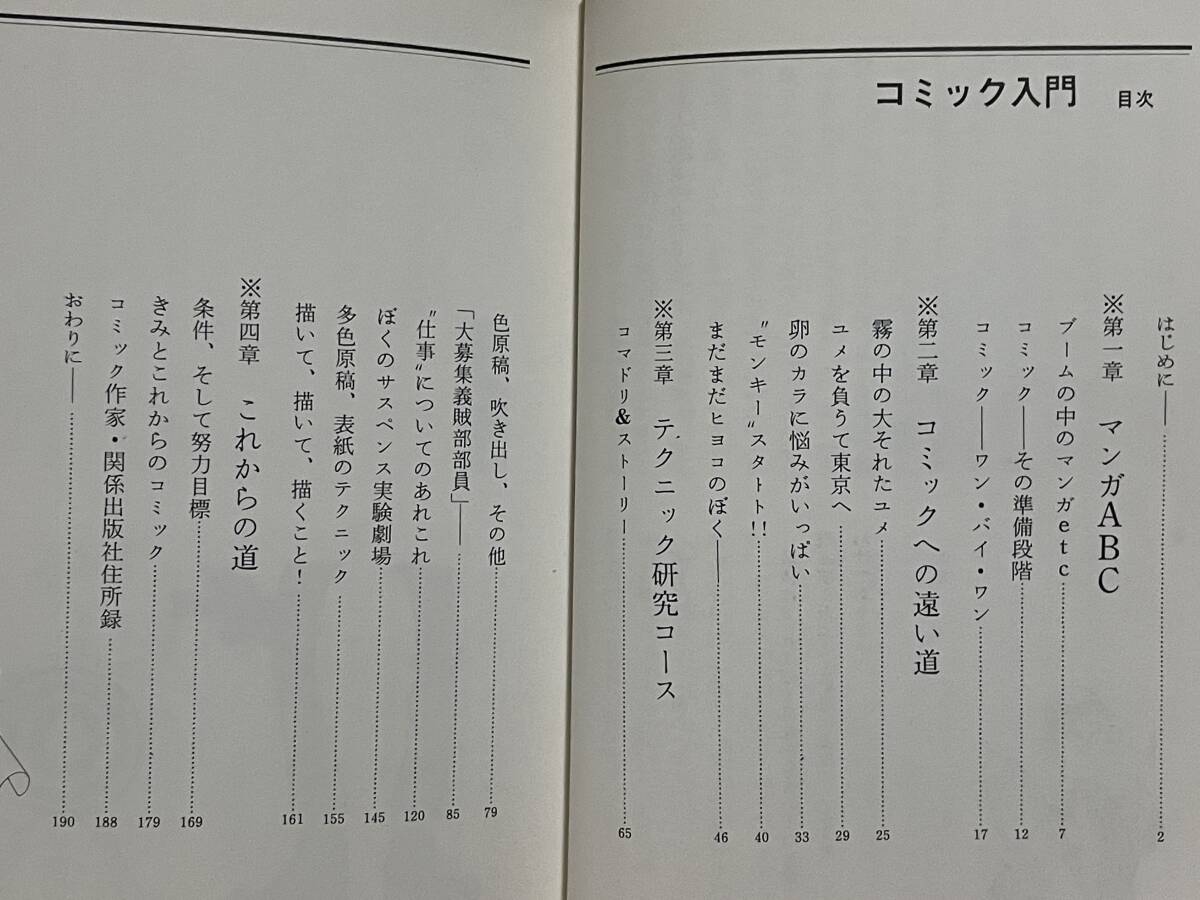 コミック入門 目次
はじめに―― 2
※第一章 マンガABC
ブームの中のマンガetc 7
コミック――その準備段階 12
コミック――ワン・バイ・ワン 17
※第二章 コミックへの遠い道
霧の中の大それたユメ 25
ユメを負うて東京へ 29
卵のカラに悩みがいっぱい 33
〝モンキー〟スタート!! 40
まだまだヒヨコのぼく―― 46
※第三章 テクニック研究コース
コマドリ&ストーリー 65
色原稿、吹き出し、その他 79
「大募集義賊部部員」―― 85
〝仕事〟についてのあれこれ 120
ぼくのサスペンス実験劇場 145
多色原稿、表紙のテクニック 155
描いて、描いて、描くこと! 161
※第四章 これからの道
条件、そして努力目標 169
きみとこれからのコミック 179
コミック作家・関係出版社住所録 188
おわりに―― 190